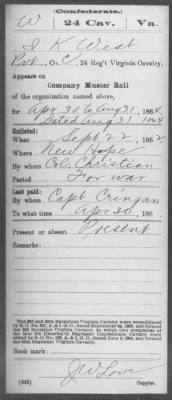 (Confederate.)
W 24 Cav. Va.
I K West
Pvt, Co. C, 24 Reg't Virginia Cavalry.
Appears on
Company Muster Roll
of the organization named above,
for Apr 30 to Aug 31, 1864.
Dated Aug 31 1864
Enlisted:
When Sept 22, 1862.
Where New Hope
By whom Col. Christian
Period For war
Last paid:
By whom Capt Cringan
To what time Apr 30, 186 .
Present or absent Present
Remarks:
Book mark:
J W Love
(642) Copyist.